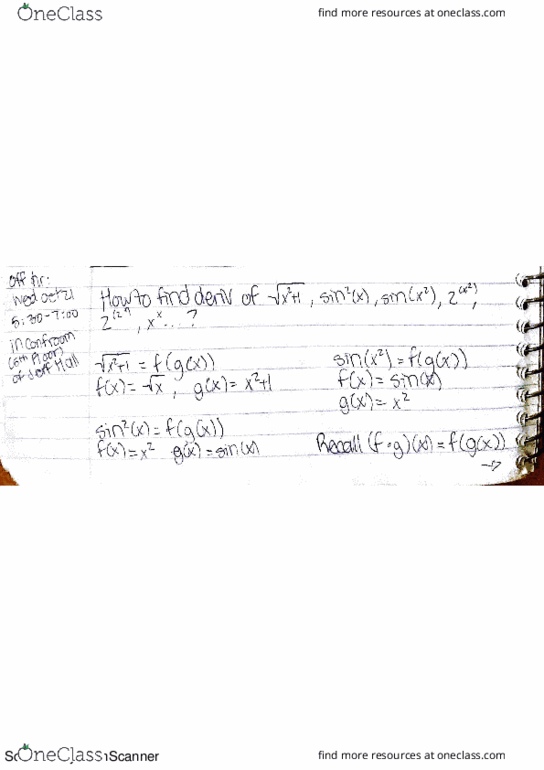 OneClass
find more resources at oneclass.com
off hr:
wed oct 21
5:30-7:00
in conf room
(6th floor)
of Jeff Hall
How to find deriv of √x²+1, sin²(x), sin(x²), 2^(x²),
, x^x ... ?
√x²+1 = f(g(x))
f(x) = √x, g(x) = x²+1
sin(x²) = f(g(x))
f(x) = sin(x)
g(x) = x²
sin²(x) = f(g(x))
f(x) = x² g(x) = sin(x)
Recall (f∘g)(x) = f(g(x))
→
OneClass
Scanner
find more resources at oneclass.com